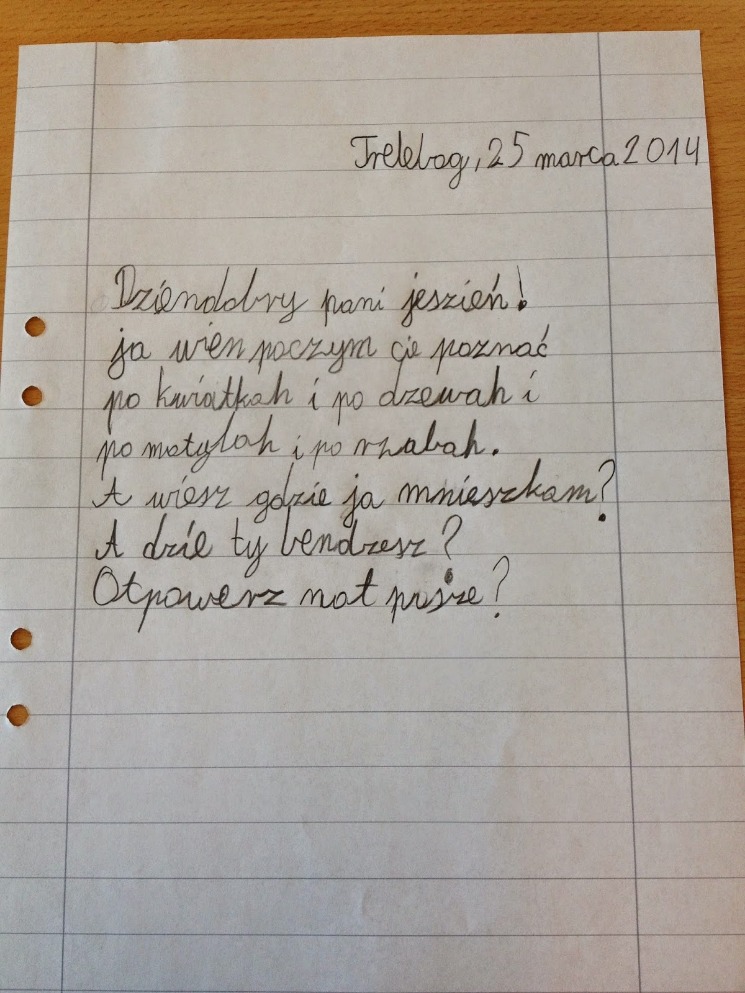 Trelebog, 25 marca 2014
Dziendobry pani jeszień!
ja wien poczym cie poznać
po kwiatkah i po dzewah i
po motylah i po rzabah.
A wiesz gdzie ja mnieszkam?
A dzie ty bendzesz?
Otpowerz mot prisze?